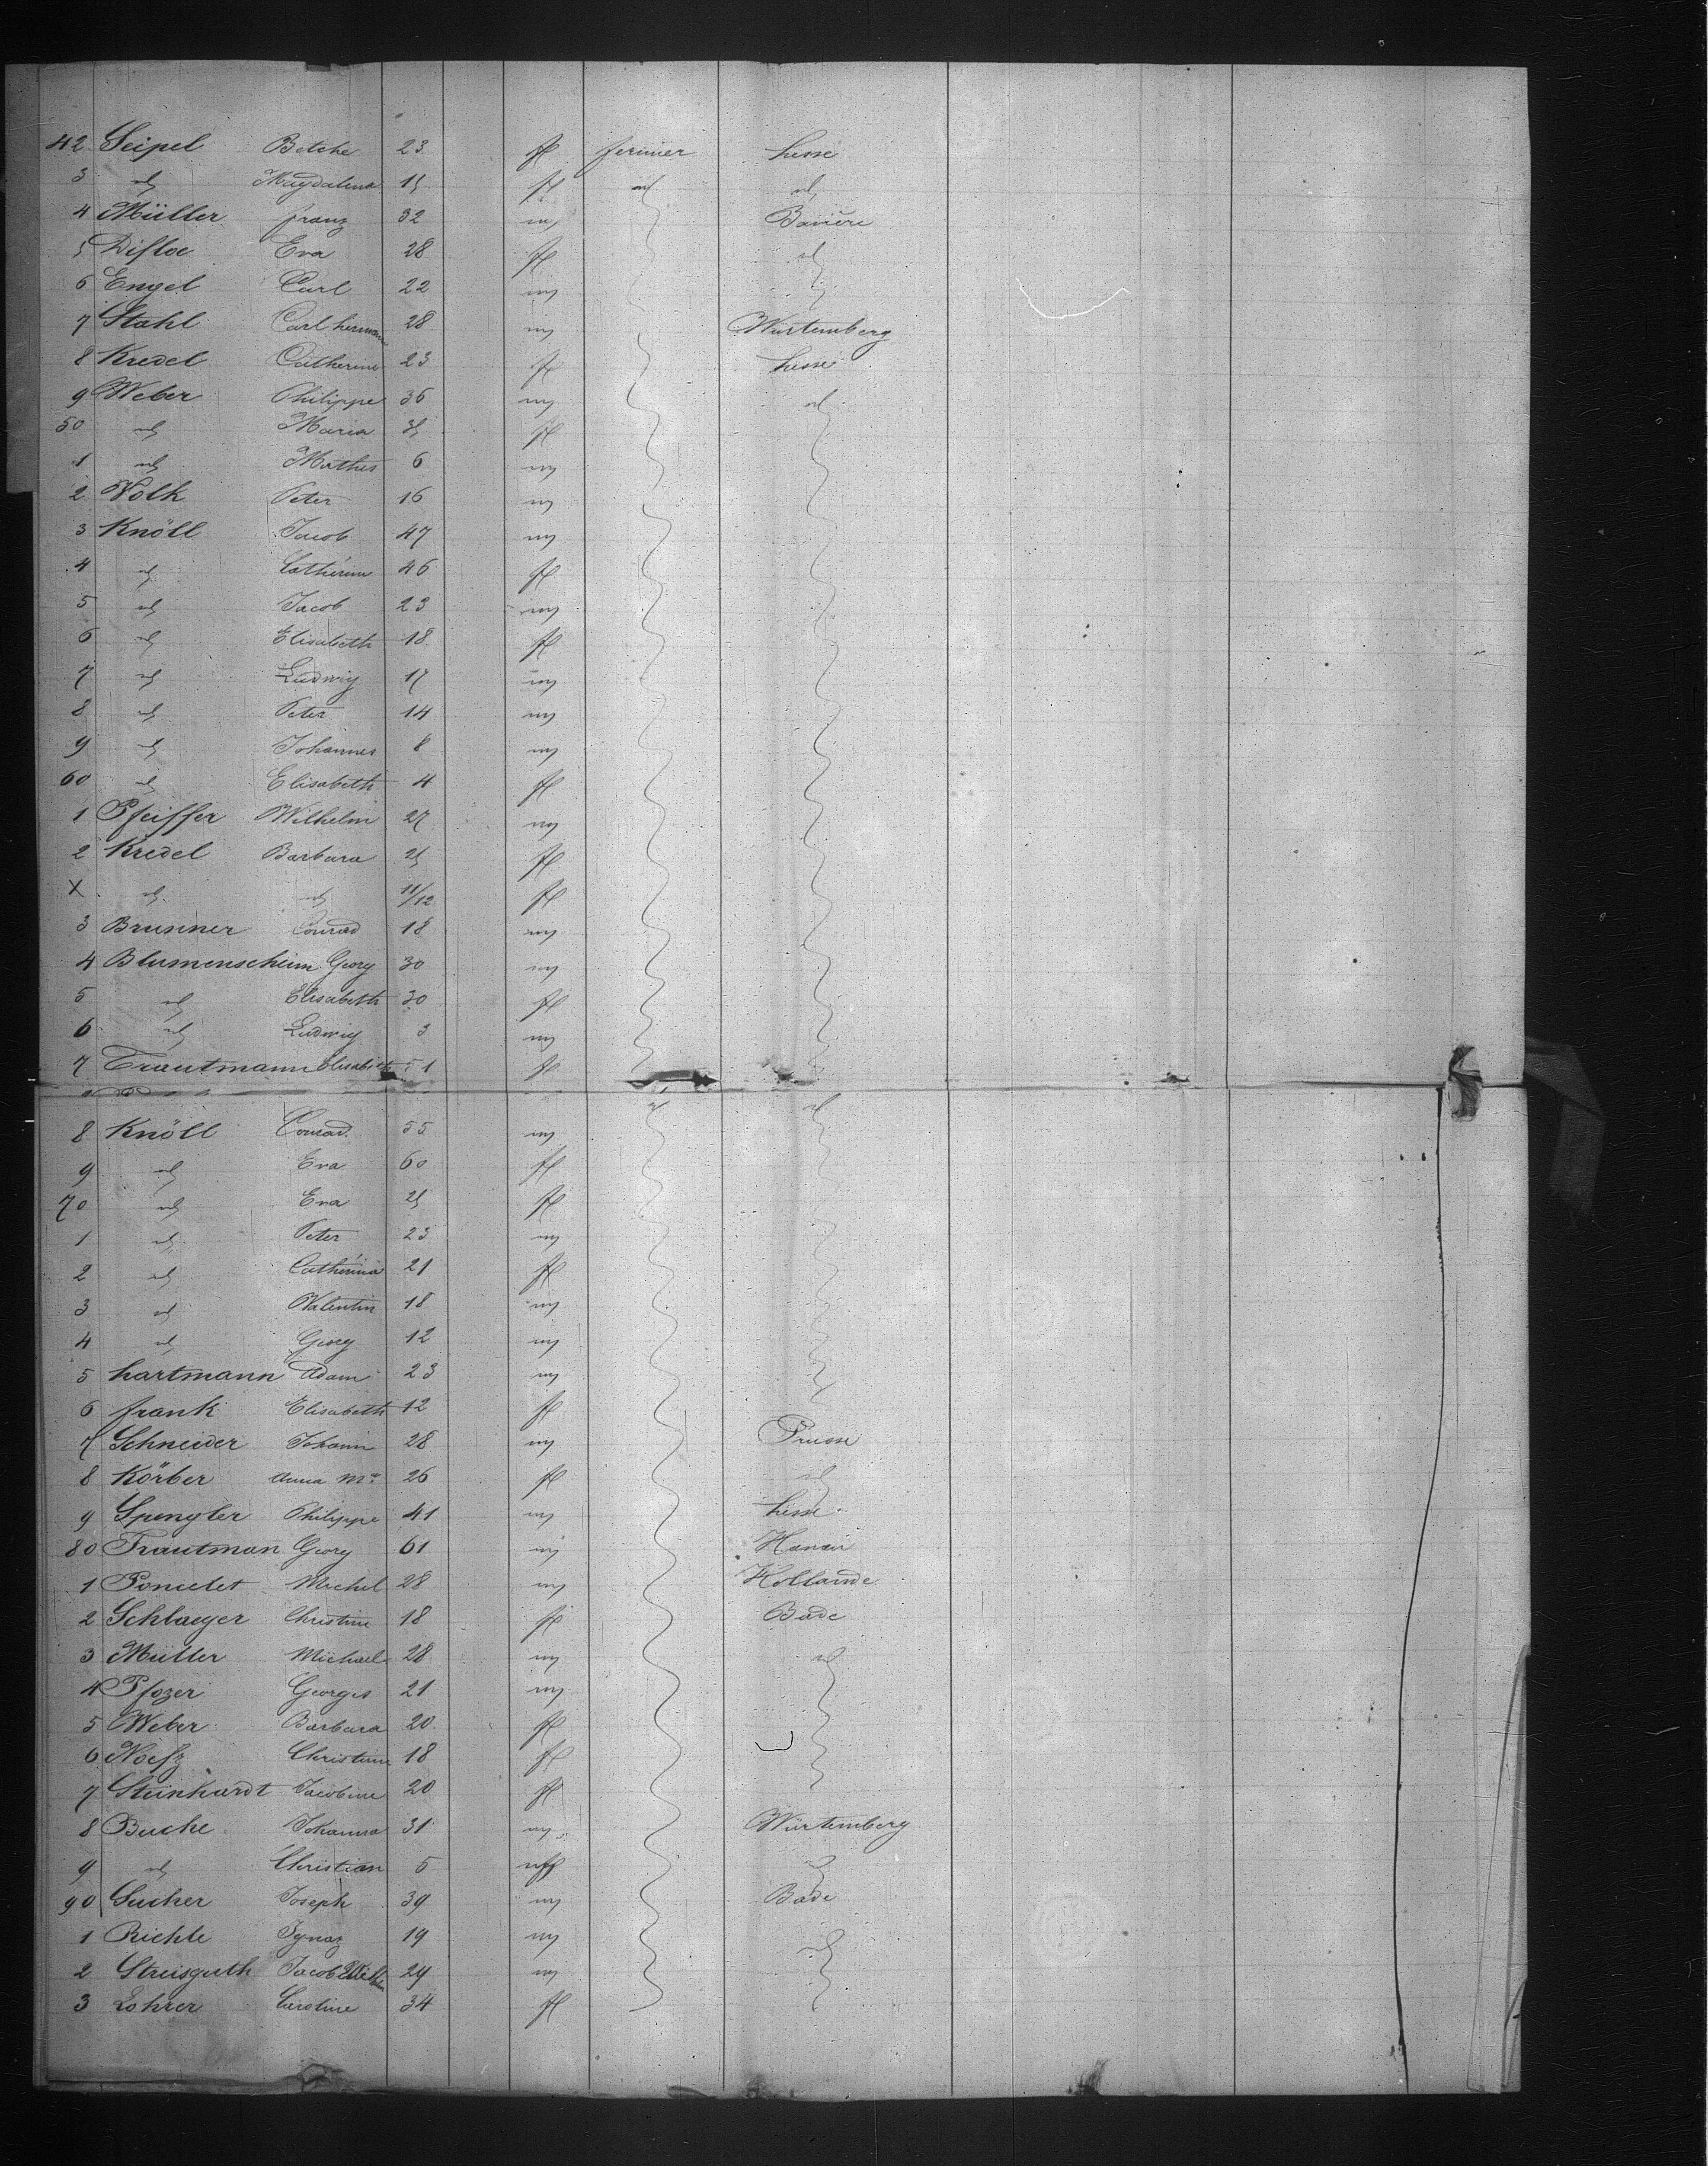 42 Seipel Betche 23 fl fermier hesse
3 id Magdalena 15 fl id id
4 Müller franz 32 m Bavière
5 Difloe Eva 28 fl id
6 Engel Carl 22 m
7 Stahl Carl herman 28 m Würtemberg
8 Kredel Catherine 23 fl hesse
9 Weber Philippe 36 m id
50 id Maria 35 fl
1 id Mathes 6 m
2 Volk Peter 16 m
3 Knöll Jacob 47 m
4 id Catherine 46 fl
5 id Jacob 23 m
6 id Elisabeth 18 fl
7 id Ludwig 17 m
8 id Peter 14 m
9 id Johannes 8 m
60 id Elisabeth 4 fl
1 Pfeiffer Wilhelm 27 m
2 Kredel Barbara 25 fl
X id id 11/12 fl
3 Brunner Conrad 18 m
4 Blumenscheim Georg 30 m
5 id Elisabeth 30 fl
6 id Ludwig 3 m
7 Trautmann Elisabeth 51 fl
8 Knöll Conrad 55 m id id
9 id Eva 60 fl
70 id Eva 25 fl
1 id Peter 23 m
2 id Catherina 21 fl
3 id Valentin 18 m
4 id Georg 12 m
5 hartmann Adam 23 m
6 frank Elisabeth 12 fl
7 Schneider Johann 28 m Prusse
8 Körber Anna Ma 26 fl id
9 Spengler Philippe 41 m hesse
80 Trautman Georg 61 m Hanau
1 Poncelet Michel 28 m Hollande
2 Schlaeger Christine 18 fl Bade
3 Müller Michael 28 m id
4 Pfozer Georges 21 m
5 Weber Barbara 20 fl
6 Christine 18 fl
7 Steinhardt Jacobine 20 fl
8 Buche Johanna 31 m Würtemberg
9 id Christian 5 id
90 Sucher Joseph 39 m Bade
1 Richle Ignaz 19 m id
2 Streisguth Jacob 29 m
3 Lohrer Caroline 34 fl